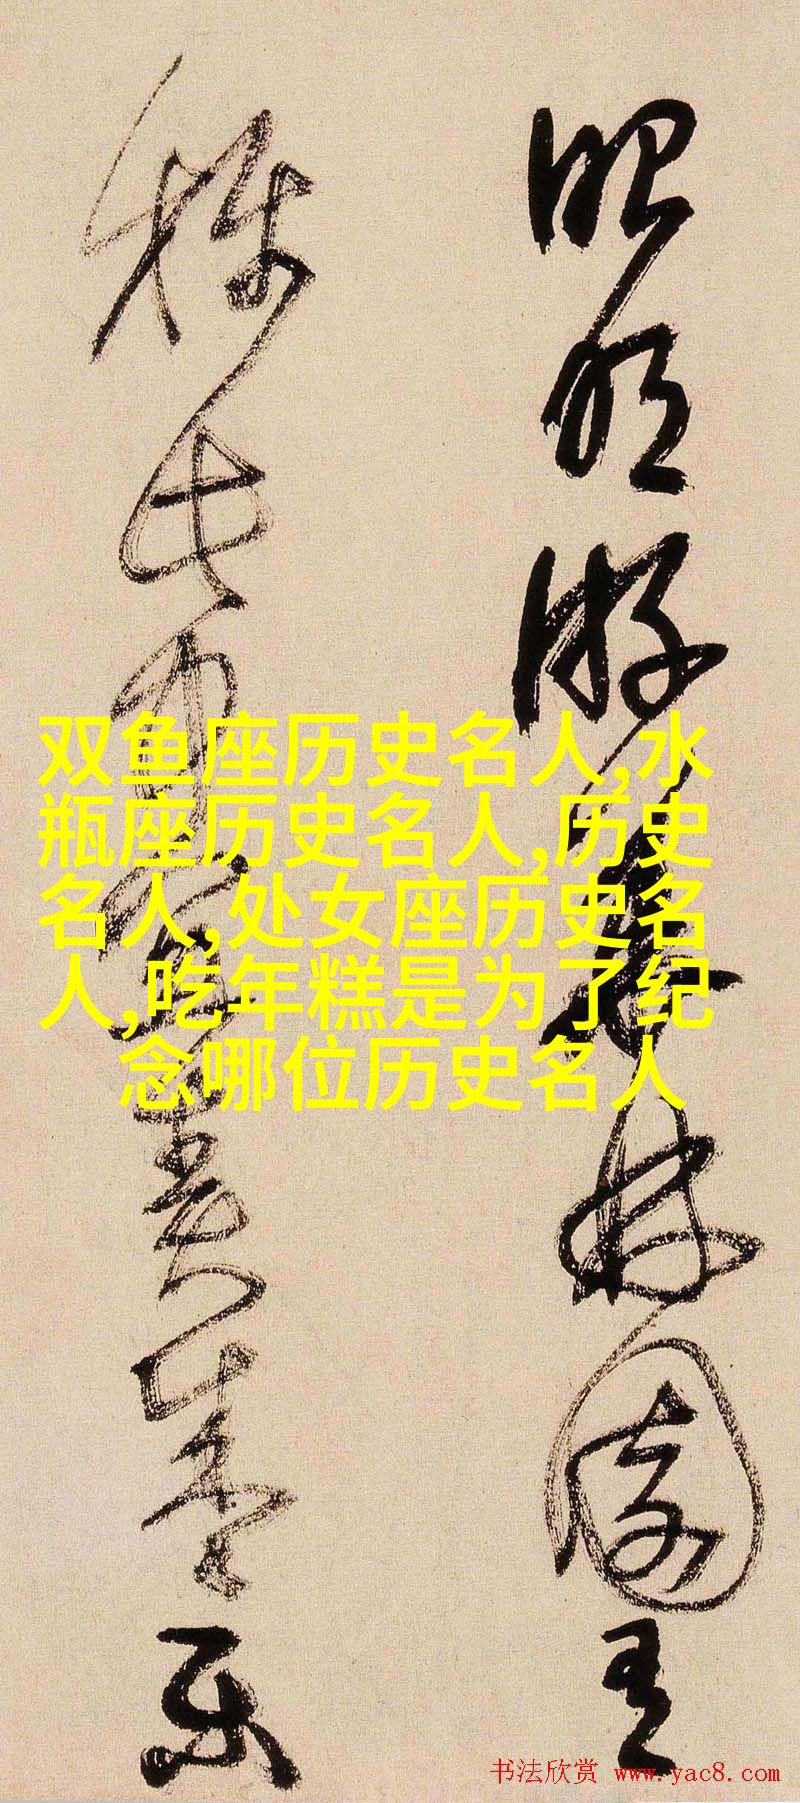 昭明游華林園
稱此中宜
双鱼座历史名人,水
瓶座历史名人,历史
名人,处女座历史名
人,吃年糕是为了纪
念哪位历史名人
书法欣赏 www.yac8.com